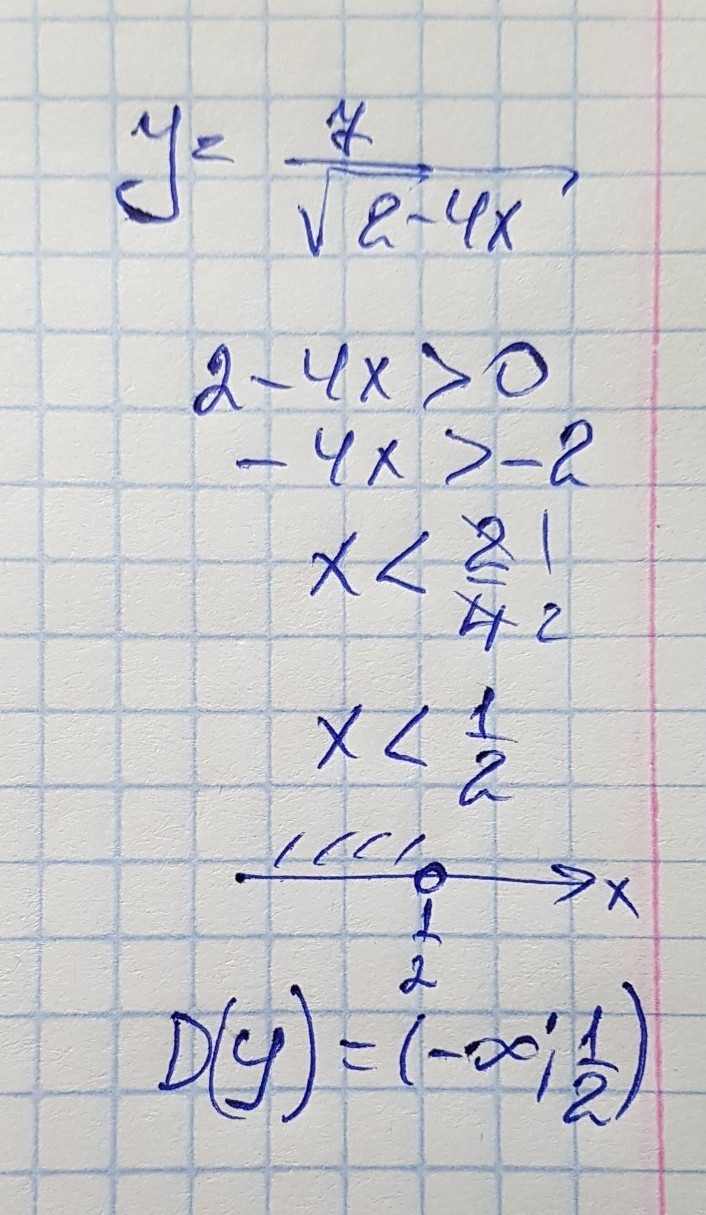 y = 7/√(2-4x)
2-4x>0
-4x>-2
x < 2/4 1/2
x < 1/2
x
1/2
D(y) = (-∞; 1/2)